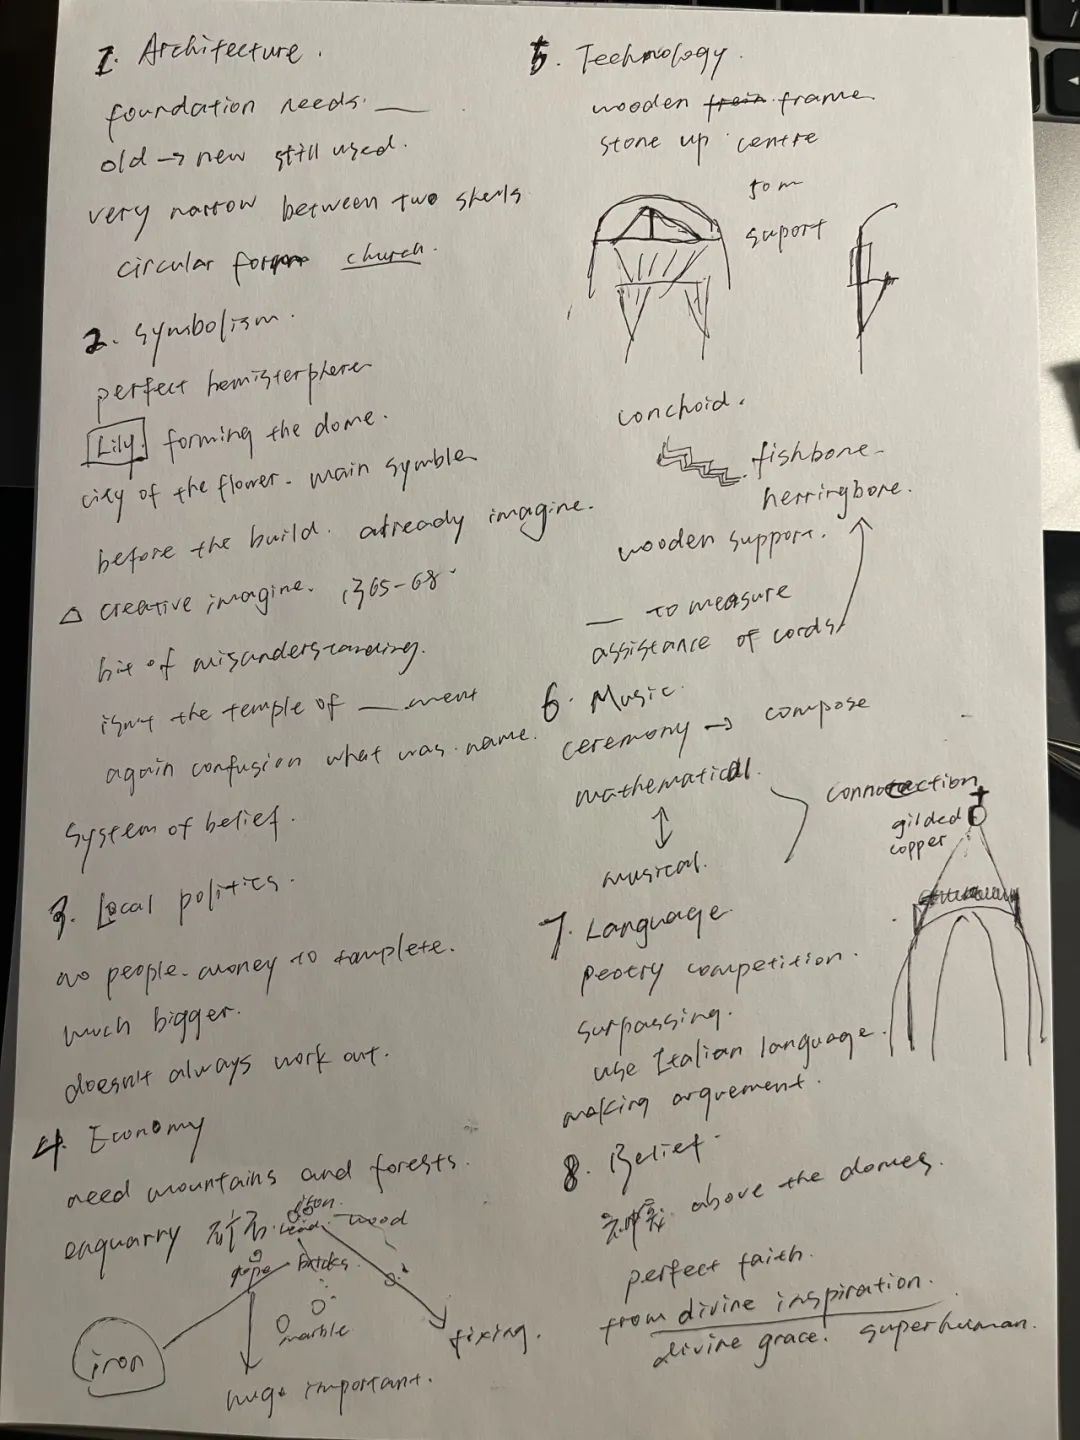 1. Architecture.
foundation needs. __
old → new still used.
very narrow between two shells
circular form church.
2. Symbolism.
perfect hemisterphere
Lily. forming the dome.
city of the flower. main symble
before the build. already imagine.
△ creative imagine. 1365-68.
bit of misunderstanding.
isn't the temple of __ment
again confusion what was name.
System of belief.
3. Local politics.
no people. money to complete.
much bigger.
doesn't always work out.
4. Economy
need mountains and forests.
enquarry
lead. wood
bricks.
marble
iron
fixing.
huge important.
5. Technology.
wooden frame
stone up centre
to
suport
conchoid.
fishbone
herringbone.
wooden support.
__ to measure
assistance of cords
6. Music.
ceremony → compose
mathematical.
↕
musical.
connection
gilded
copper
7. Language
peotry competition.
surpassing.
use Italian language.
making arguement.
8. Belief.
above the domes.
perfect faith.
from divine inspiration.
divine grace. superhuman.